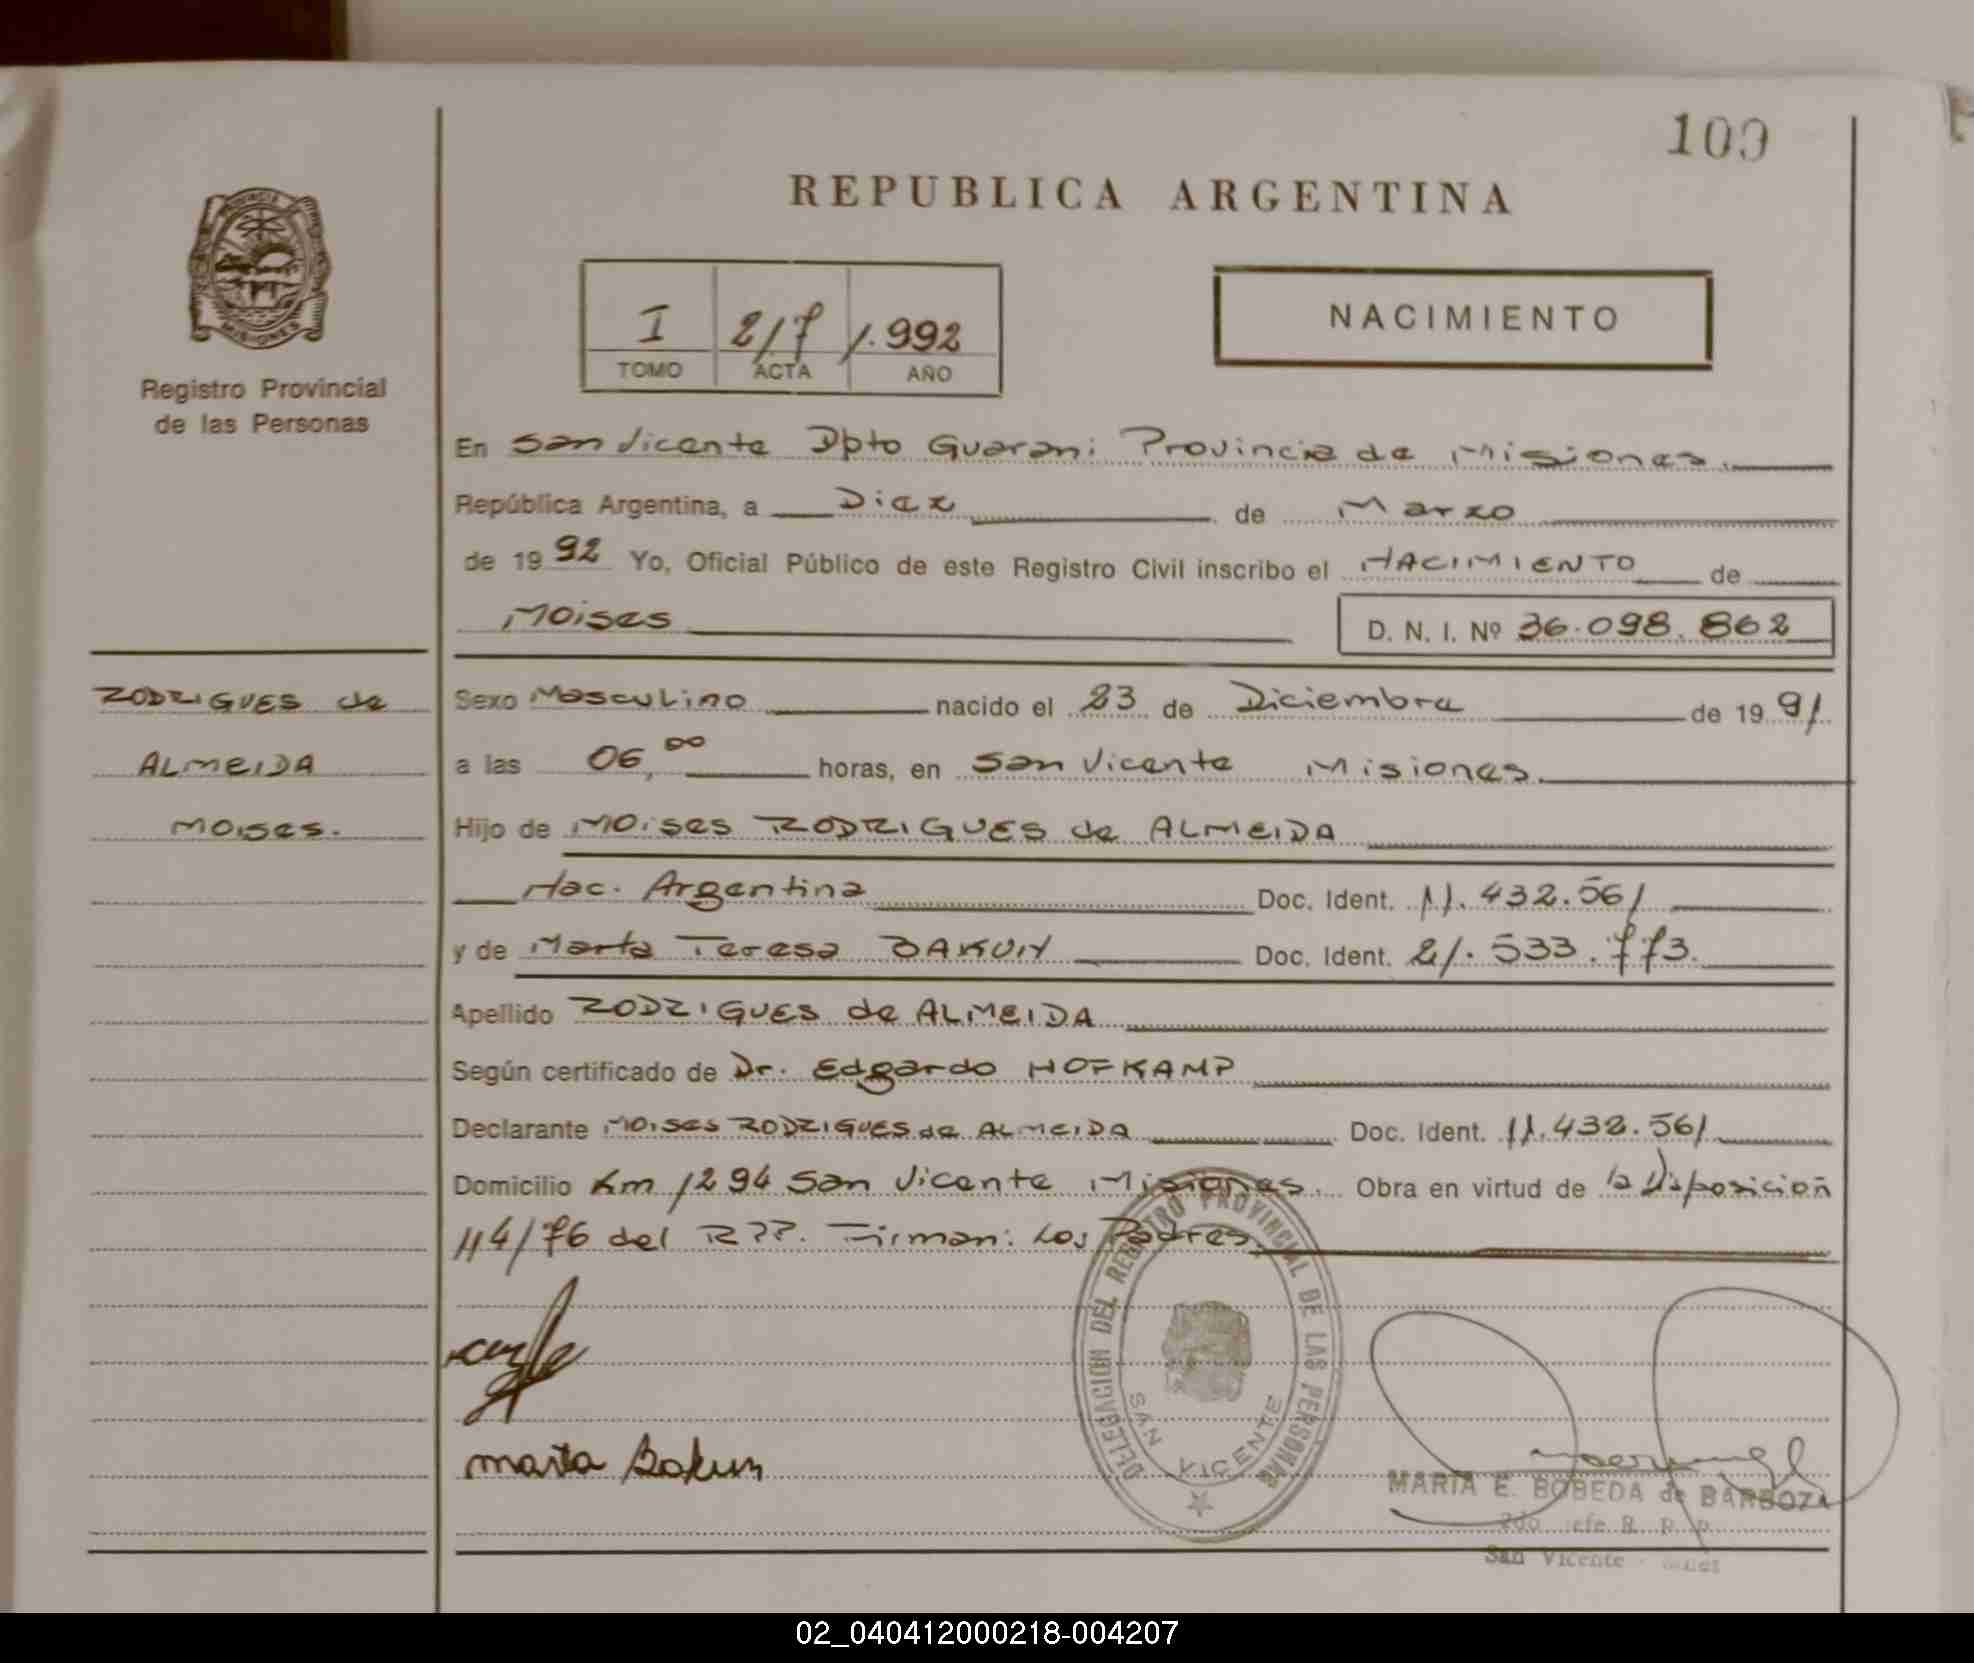 100
REPUBLICA ARGENTINA
PROVINCIA
MISIONES
Registro Provincial
de las Personas
I 217 1.992
TOMO ACTA AÑO
NACIMIENTO
En San Vicente Dpto Guarani Provincia de Misiones.
República Argentina, a Diez de Marzo
de 1992 Yo, Oficial Público de este Registro Civil inscribo el NACIMIENTO de
Moises D. N. I. Nº 36.098.862
RODRIGUES de
ALMEIDA
Moises.
Sexo Masculino nacido el 23 de Diciembre de 1991
a las 06,00 horas, en San Vicente Misiones.
Hijo de Moises RODRIGUES de ALMEIDA
Nac. Argentina Doc. Ident. 11.432.561
y de Marta Teresa Doc. Ident. 21.533.773.
Apellido RODRIGUES de ALMEIDA
Según certificado de Dr. Edgardo HOFKAMP
Declarante Moises RODRIGUES de ALMEIDA Doc. Ident. 11.432.561
Domicilio Km 1294 San Vicente Misiones. Obra en virtud de la Disposicion
114/76 del RPP. Firman: Los Padres.
marta Bakun
DELEGACION DEL REGISTRO PROVINCIAL DE LAS PERSONAS
SAN VICENTE
MARIA E. BOBEDA de BARBOZA
2do Jefe R. P. P.
San Vicente
02_040412000218-004207